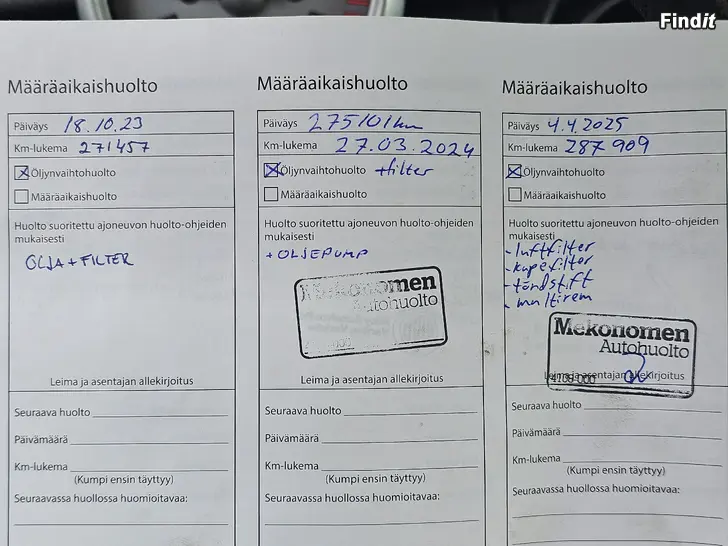 Findit
Määräaikaishuolto
Päiväys 18.10.23
Km-lukema 271457
Öljynvaihtohuolto
Määräaikaishuolto
Huolto suoritettu ajoneuvon huolto-ohjeiden
mukaisesti
OLJA + FILTER
Leima ja asentajan allekirjoitus
Seuraava huolto
Päivämäärä
Km-lukema
(Kumpi ensin täyttyy)
Seuraavassa huollossa huomioitavaa:
Määräaikaishuolto
Päiväys 275101km
Km-lukema 27.03.2024
Öljynvaihtohuolto +filter
Määräaikaishuolto
Huolto suoritettu ajoneuvon huolto-ohjeiden
mukaisesti
+ OLJEPUMP
Mekonomen
Autohuolto
Leima ja asentajan allekirjoitus
Seuraava huolto
Päivämäärä
Km-lukema
(Kumpi ensin täyttyy)
Seuraavassa huollossa huomioitavaa:
Määräaikaishuolto
Päiväys 4.4.2025
Km-lukema 287909
Öljynvaihtohuolto
Määräaikaishuolto
Huolto suoritettu ajoneuvon huolto-ohjeiden
mukaisesti
- luftfilter
- kupefilter
- tändstift
- multirem
Mekonomen
Autohuolto
Leima ja asentajan allekirjoitus
Seuraava huolto
Päivämäärä
Km-lukema
(Kumpi ensin täyttyy)
Seuraavassa huollossa huomioitavaa: